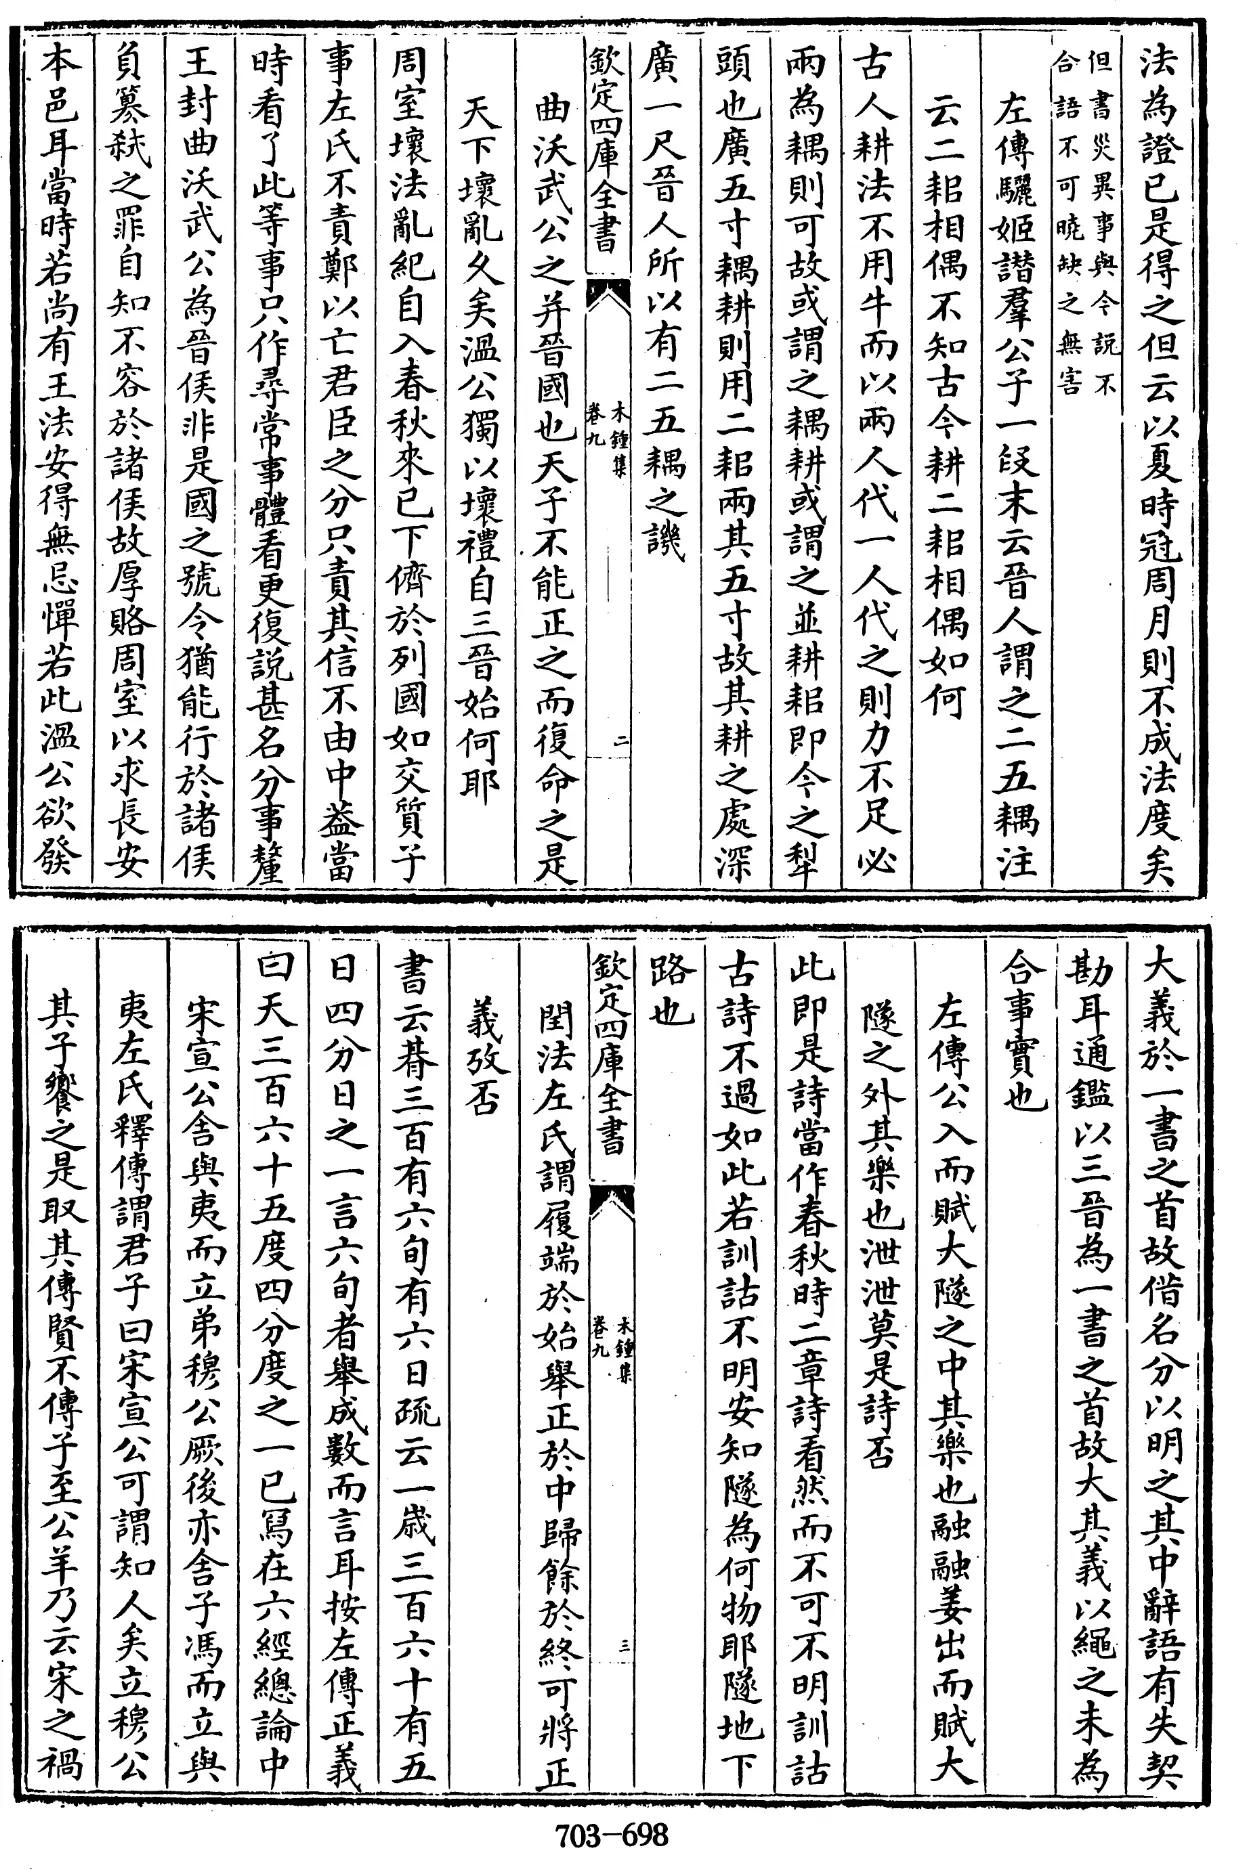 法為證已是得之但云以夏時冠周月則不成法度矣
但書災異事與今説不
合語不可曉缺之無害
左傳驪姬譖羣公子一段末云晉人謂之二五耦注
云二耜相偶不知古今耕二耜相偶如何
古人耕法不用牛而以兩人代一人代之則力不足必
兩為耦則可故或謂之耦耕或謂之並耕耜即今之犁
頭也廣五寸耦耕則用二耜兩其五寸故其耕之處深
廣一尺晉人所以有二五耦之譏
欽定四庫全書
木鍾集
卷九
二
曲沃武公之并晉國也天子不能正之而復命之是
天下壞亂久矣溫公獨以壞禮自三晉始何耶
周室壞法亂紀自入春秋來已下儕於列國如交質子
事左氏不責鄭以亡君臣之分只責其信不由中葢當
時看了此等事只作尋常事體看更復説甚名分事釐
王封曲沃武公為晉侯非是國之號令猶能行於諸侯
負簒弑之罪自知不容於諸侯故厚賂周室以求長安
本邑耳當時若尚有王法安得無忌憚若此溫公欲發
大義於一書之首故借名分以明之其中辭語有失契
勘耳通鑑以三晉為一書之首故大其義以繩之未為
合事實也
左傳公入而賦大隧之中其樂也融融姜出而賦大
隧之外其樂也泄泄莫是詩否
此即是詩當作春秋時二章詩看然而不可不明訓詁
古詩不過如此若訓詁不明安知隧為何物耶隧地下
路也
欽定四庫全書
木鍾集
卷九
三
閏法左氏謂履端於始舉正於中歸餘於終可將正
義攷否
書云朞三百有六旬有六日疏云一歲三百六十有五
日四分日之一言六旬者舉成數而言耳按左傳正義
曰天三百六十五度四分度之一已冩在六經總論中
宋宣公舍與夷而立弟穆公厥後亦舍子馮而立與
夷左氏釋傳謂君子曰宋宣公可謂知人矣立穆公
其子饗之是取其傳賢不傳子至公羊乃云宋之禍
703-698